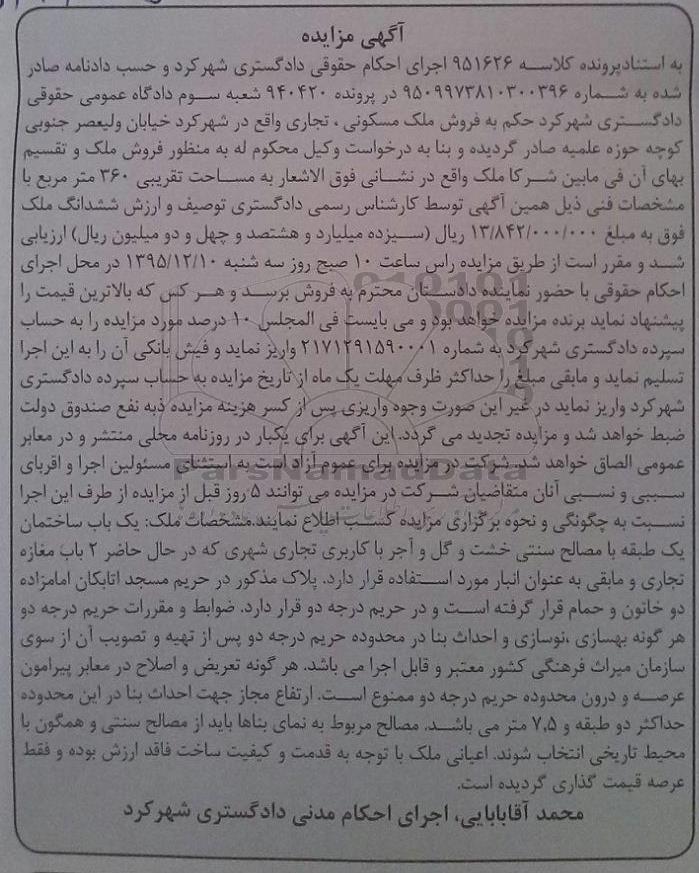 آگهی مزایده
به استناد پرونده کلاسه ۹۵۱۶۲۶ اجرای احکام حقوقی دادگستری شهرکرد و حسب دادنامه صادر
شده به شماره ۹۵۰۹۹۷۳۸۱۰۳۰۰۳۹۶ در پرونده ۹۴۰۴۲۰ شعبه سوم دادگاه عمومی حقوقی
دادگستری شهرکرد حکم به فروش ملک مسکونی ، تجاری واقع در شهرکرد خیابان ولیعصر جنوبی
کوچه حوزه علمیه صادر گردیده و بنا به درخواست وکیل محکوم له به منظور فروش ملک و تقسیم
بهای آن فی مابین شرکا ملک واقع در نشانی فوق الاشعار به مساحت تقریبی ۳۶۰ متر مربع با
مشخصات فنی ذیل همین آگهی توسط کارشناس رسمی دادگستری توصیف و ارزش ششدانگ ملک
فوق به مبلغ ۱۳/۸۴۲/۰۰۰/۰۰۰ ریال (سیزده میلیارد و هشتصد و چهل و دو میلیون ریال) ارزیابی
شد و مقرر است از طریق مزایده راس ساعت ۱۰ صبح روز سه شنبه ۱۳۹۵/۱۲/۱۰ در محل اجرای
احکام حقوقی با حضور نماینده دادستان محترم به فروش برسد و هر کس که بالاترین قیمت را
پیشنهاد نماید برنده مزایده خواهد بود و می بایست فی المجلس ۱۰ درصد مورد مزایده را به حساب
سپرده دادگستری شهرکرد به شماره ۲۱۷۱۲۹۱۵۹۰۰۰۱ واریز نماید و فیش بانکی آن را به این اجرا
تسلیم نماید و مابقی مبلغ را حداکثر ظرف مهلت یک ماه از تاریخ مزایده به حساب سپرده دادگستری
شهرکرد واریز نماید در غیر این صورت وجوه واریزی پس از کسر هزینه مزایده ذبه نفع صندوق دولت
ضبط خواهد شد و مزایده تجدید می گردد. این آگهی برای یکبار در روزنامه محلی منتشر و در معابر
عمومی الصاق خواهد شد. شرکت در مزایده برای عموم آزاد است به استثنای مسئولین اجرا و اقربای
سببی و نسبی آنان متقاضیان شرکت در مزایده می توانند ۵ روز قبل از مزایده از طرف این اجرا
نسبت به چگونگی و نحوه برگزاری مزایده کسب اطلاع نمایند.مشخصات ملک: یک باب ساختمان
یک طبقه با مصالح سنتی خشت و گل و آجر با کاربری تجاری شهری که در حال حاضر ۲ باب مغازه
تجاری و مابقی به عنوان انبار مورد استفاده قرار دارد. پلاک مذکور در حریم مسجد اتابکان امامزاده
دو خاتون و حمام قرار گرفته است و در حریم درجه دو قرار دارد. ضوابط و مقررات حریم درجه دو
هر گونه بهسازی ،نوسازی و احداث بنا در محدوده حریم درجه دو پس از تهیه و تصویب آن از سوی
سازمان میراث فرهنگی کشور معتبر و قابل اجرا می باشد. هر گونه تعریض و اصلاح در معابر پیرامون
عرصه و درون محدوده حریم درجه دو ممنوع است. ارتفاع مجاز جهت احداث بنا در این محدوده
حداکثر دو طبقه و ۷٫۵ متر می باشد. مصالح مربوط به نمای بناها باید از مصالح سنتی و همگون با
محیط تاریخی انتخاب شوند. اعیانی ملک با توجه به قدمت و کیفیت ساخت فاقد ارزش بوده و فقط
عرصه قیمت گذاری گردیده است.
محمد آقابابایی، اجرای احکام مدنی دادگستری شهرکرد
ParsNamadData